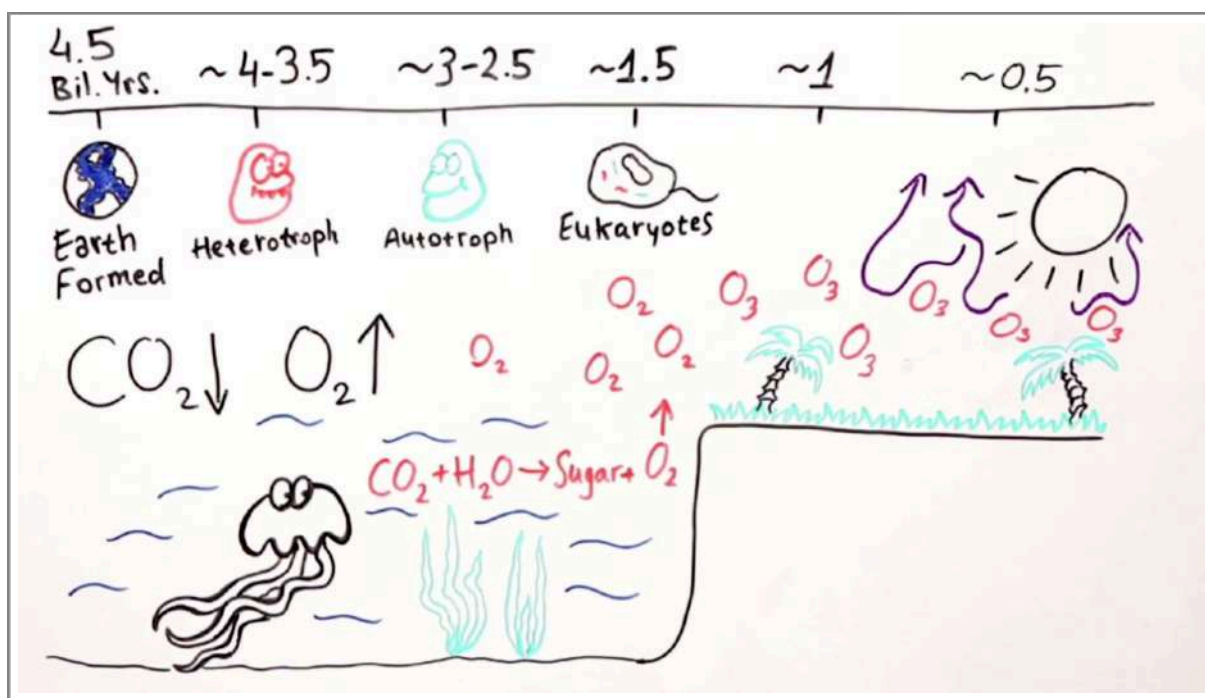 4.5
Bil. Yrs.
~4-3.5
~3-2.5
~1.5
~1
~0.5
Earth
Formed
Heterotroph
Autotroph
Eukaryotes
CO₂↓
O₂↑
O₂
O₂
O₂
O₂
O₃
O₃
O₃
O₃
O₃
O₃
CO₂+H₂O→Sugar+O₂